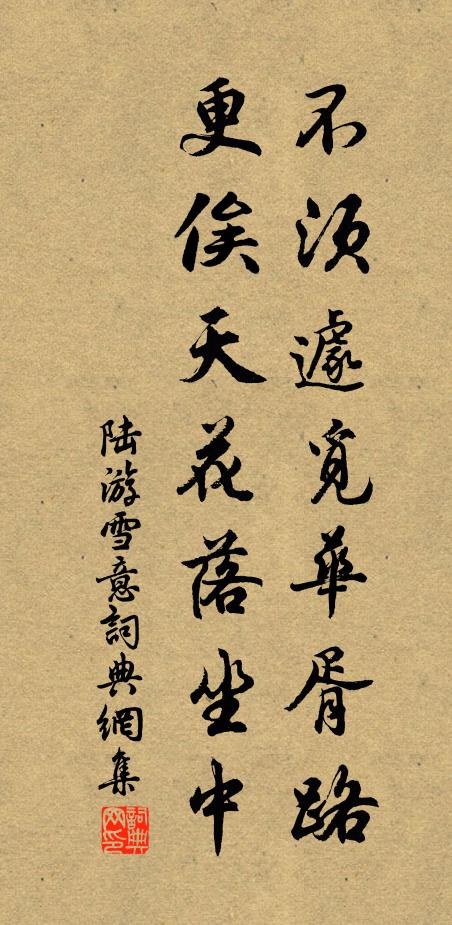 不須遽覓華胥路
更俟天花落坐中
陸游雪意詞典網集
詞典网印